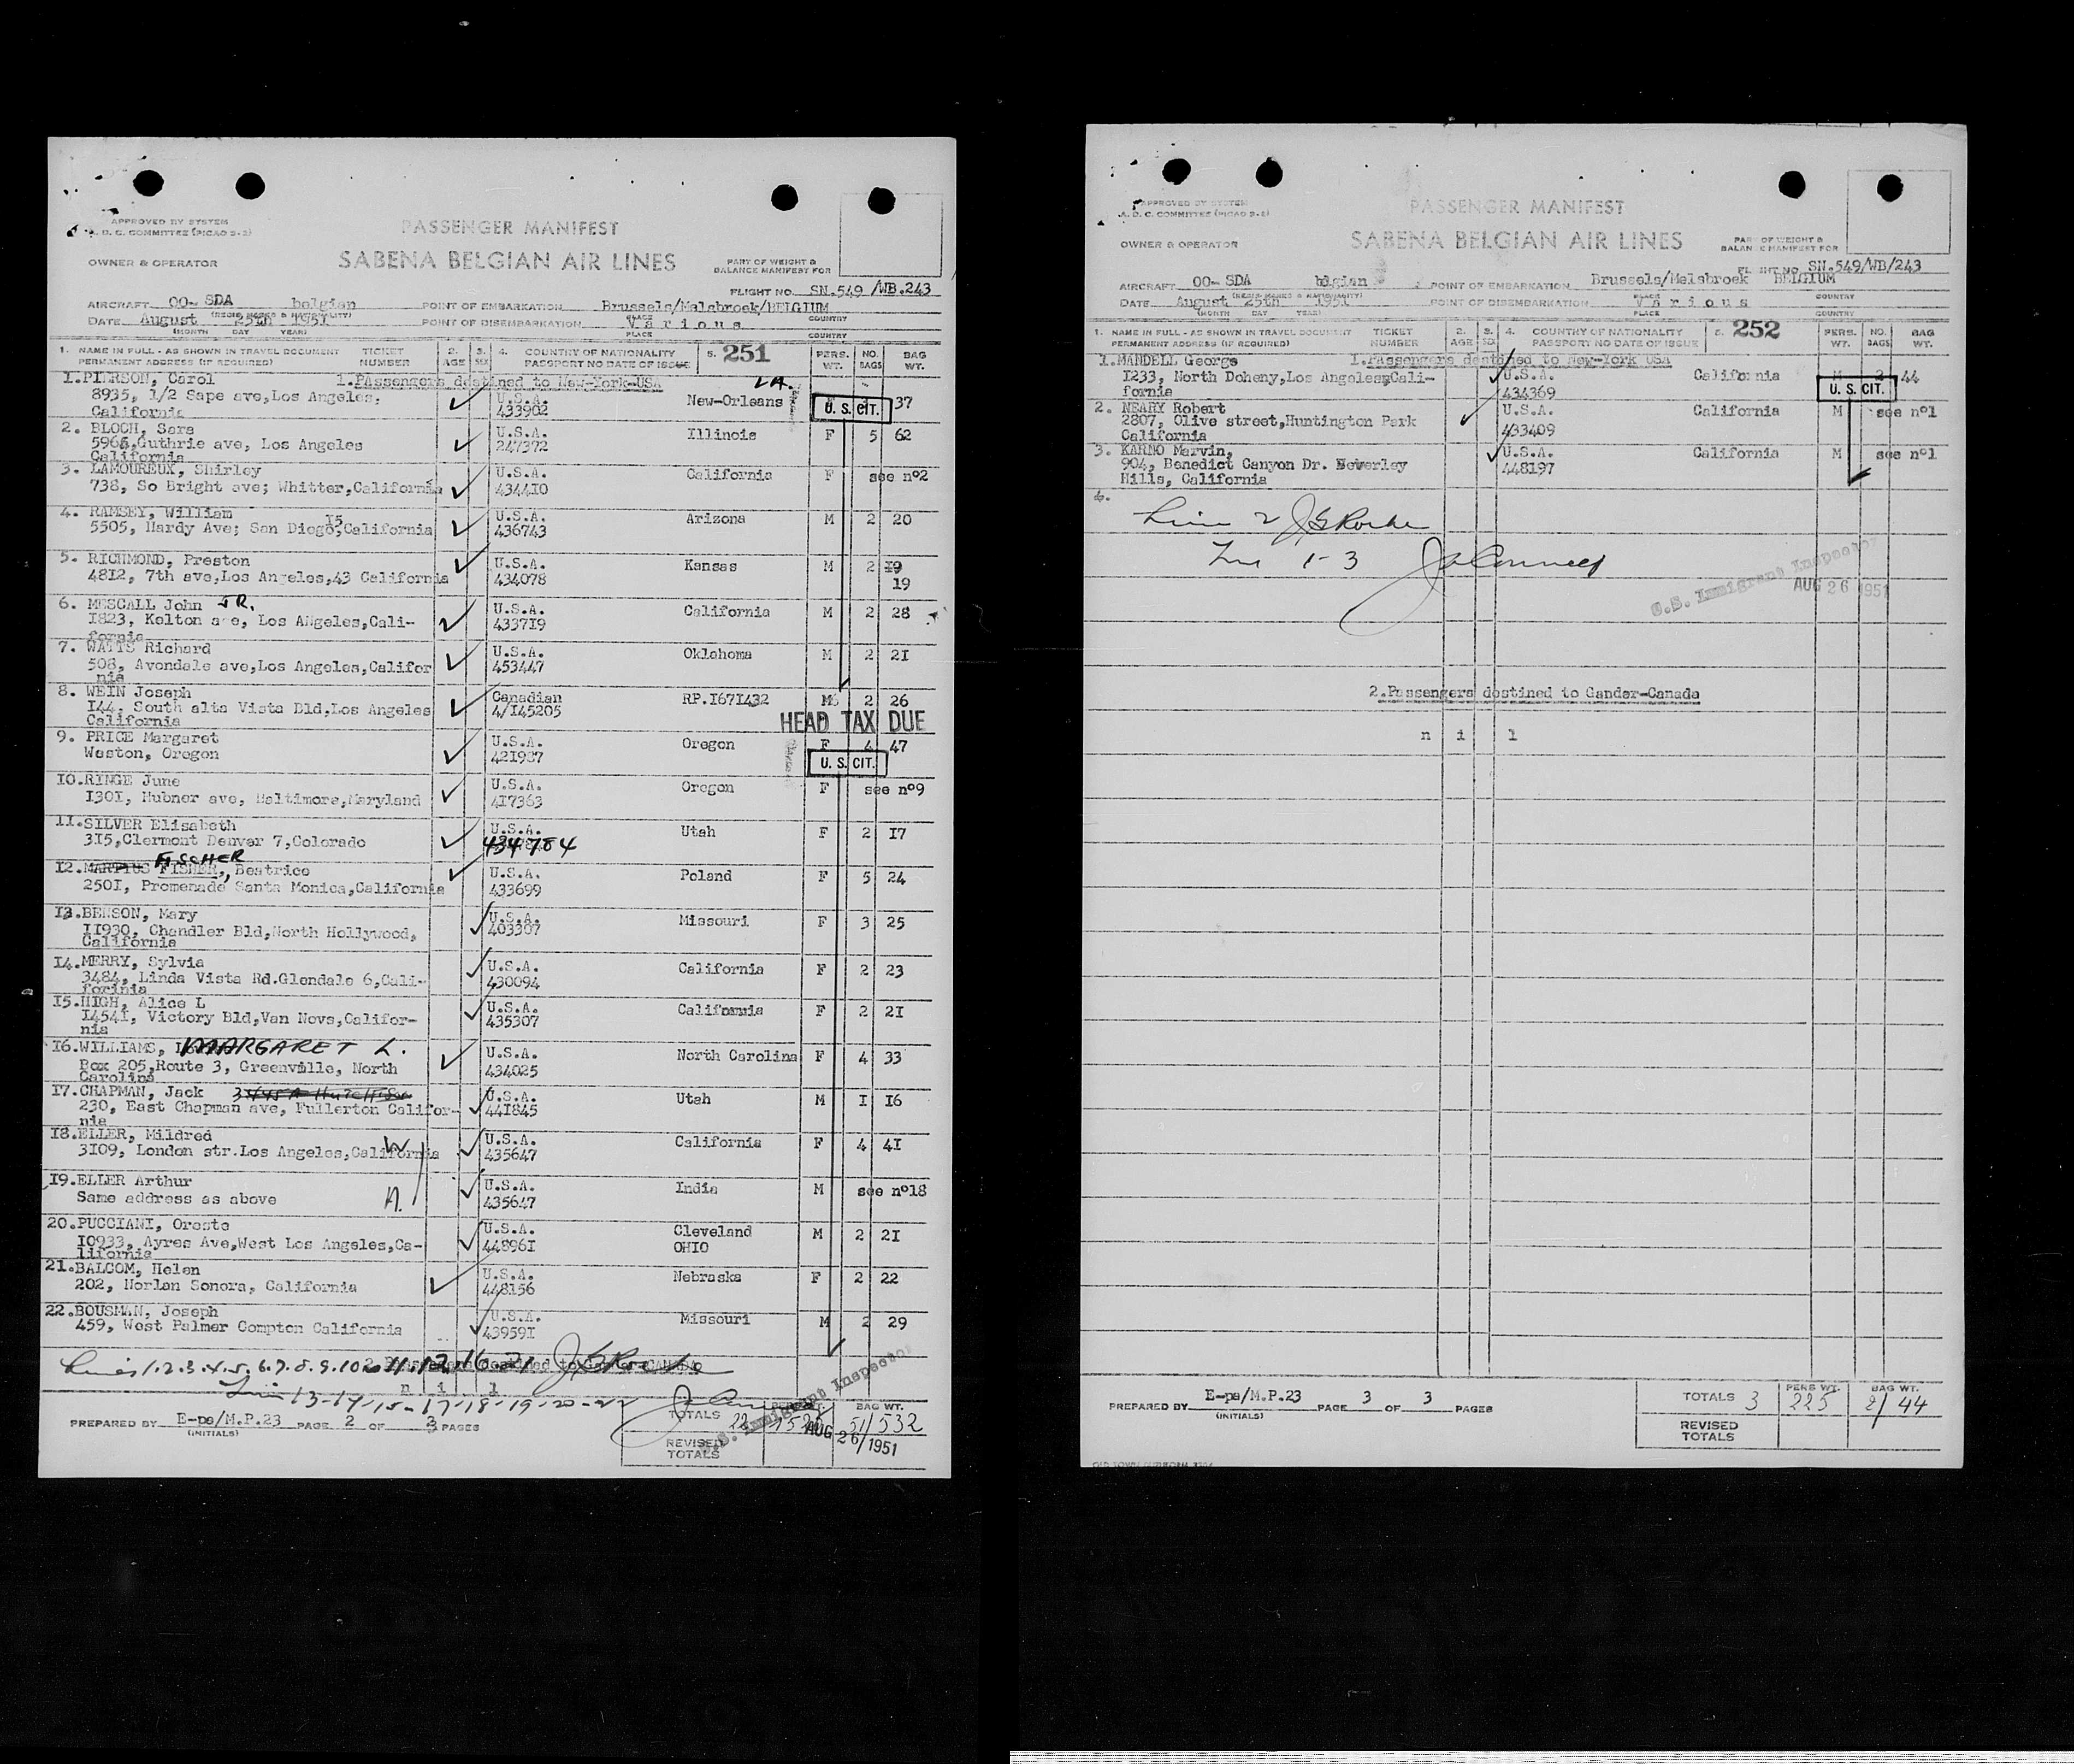 APPROVED BY SYSTEM
A. D. C. COMMITTEE (PICAO 9-2)
PASSENGER MANIFEST
OWNER & OPERATOR
SABENA BELGIAN AIR LINES
PART OF WEIGHT &
BALANCE MANIFEST FOR
FLIGHT NO. SN.549 /WB.243
AIRCRAFT OO- SDA belgian POINT OF EMBARKATION Brussels/Melsbroek/BELGIUM
(REGIS MARKS & NATIONALITY) PLACE COUNTRY
DATE August 25th 1951 POINT OF DISEMBARKATION Various
(MONTH DAY YEAR) PLACE COUNTRY
1. NAME IN FULL - AS SHOWN IN TRAVEL DOCUMENT TICKET 2. 3. 4. COUNTRY OF NATIONALITY 5. 251 PERS. NO. BAG
PERMANENT ADDRESS (IF REQUIRED) NUMBER AGE SEX PASSPORT NO DATE OF ISSUE WT. BAGS WT.
1.PIERSON, Carol 1.Passengers destined to New-York-USA
8935, 1/2 Sape ave,Los Angeles, U.S.A. New-Orleans U. S. CIT. 37
California 433902
2. BLOCH, Sara U.S.A. Illinois F 5 62
5965,Guthrie ave, Los Angeles 247372
California
3. LAMOUREUX, Shirley U.S.A. California F see n°2
738, So Bright ave; Whitter,California 434410
4. RAMSEY, William U.S.A. Arizona M 2 20
5505, Hardy Ave; San Diego,15,California 436743
5. RICHMOND, Preston U.S.A. Kansas M 2 19
4812, 7th ave,Los Angeles,43 California 434078 19
6. MESCALL John JR. U.S.A. California M 2 28
1823, Kelton ave, Los Angeles,Cali- 433719
fornia
7. WATTS Richard U.S.A. Oklahoma M 2 21
508, Avondale ave,Los Angeles,Califor 453447
nia
8. WEIN Joseph Canadian RP.1671432 M 2 26
144, South alta Vista Bld,Los Angeles 4/145205
California HEAD TAX DUE
9. PRICE Margaret U.S.A. Oregon F 4 47
Weston, Oregon 421987 U. S. CIT.
10.RINGE June U.S.A. Oregon F see n°9
1301, Hubner ave, Baltimore,Maryland 417363
11.SILVER Elisabeth U.S.A. Utah F 2 17
315,Clermont Denver 7,Colorado 434784
FISCHER
12.MARTIUS FISHER, Beatrice U.S.A. Poland F 5 24
2501, Promenade Santa Monica,California 433699
13.BENSON, Mary U.S.A. Missouri F 3 25
11930, Chandler Bld,North Hollywood, 403307
California
14.MERRY, Sylvia U.S.A. California F 2 23
3484, Linda Vista Rd.Glendale 6,Cali- 430094
forinia
15.HIGH, Alice L U.S.A. California F 2 21
14541, Victory Bld,Van Novs,Califor- 435307
nia
16.WILLIAMS, MARGARET L. U.S.A. North Carolina F 4 33
Box 205,Route 3, Greenville, North 434025
Carolina
17.CHAPMAN, Jack U.S.A. Utah M 1 16
230, East Chapman ave, Fullerton Califor- 441845
nia
18.ELLER, Mildred W U.S.A. California F 4 41
3109, London str.Los Angeles,California 435647
19.ELLER Arthur U.S.A. India M see n°18
Same address as above H. 435647
20.PUCCIANI, Oreste U.S.A. Cleveland M 2 21
10933, Ayres Ave,West Los Angeles,Ca- 448961 OHIO
lifornia
21.BALCOM, Helen U.S.A. Nebraska F 2 22
202, Norlan Sonora, California 448156
22.BOUSMAN, Joseph U.S.A. Missouri M 2 29
459, West Palmer Compton California 439591
Lines 1.2.3.4.5.6.7.8.9.10.11.12.16.21
nil
Line 13-14-15-17-18-19-20-22
PREPARED BY E-ps/M.P.23 PAGE 2 OF 3 PAGES
(INITIALS)
TOTALS 22 BAG WT. 51/532
REVISED
TOTALS
U.S. Immigrant Inspector
AUG 26 1951
APPROVED BY SYSTEM
A. D. C. COMMITTEE (PICAO 9-2)
PASSENGER MANIFEST
OWNER & OPERATOR
SABENA BELGIAN AIR LINES
PART OF WEIGHT &
BALANCE MANIFEST FOR
FLIGHT NO. SN.549/WB/243
AIRCRAFT OO- SDA belgian POINT OF EMBARKATION Brussels/Melsbroek BELGIUM
(REGIS MARKS & NATIONALITY) PLACE COUNTRY
DATE August 25th 1951 POINT OF DISEMBARKATION Various
(MONTH DAY YEAR) PLACE COUNTRY
1. NAME IN FULL - AS SHOWN IN TRAVEL DOCUMENT TICKET 2. 3. 4. COUNTRY OF NATIONALITY 5. 252 PERS. NO. BAG
PERMANENT ADDRESS (IF REQUIRED) NUMBER AGE SEX PASSPORT NO DATE OF ISSUE WT. BAGS WT.
1.MANDELL George 1.Passengers destined to New-York USA
1233, North Doheny,Los Angeles,Cali- U.S.A. California M 2 44
fornia 434369 U. S. CIT.
2. NEARY Robert U.S.A. California M see n°1
2807, Olive street,Huntington Park 433409
California
3. KARNO Marvin, U.S.A. California M see n°1
904, Benedict Canyon Dr. Beverley 448197
Hills, California
4.
Line 2
Line 1-3
U.S. Immigrant Inspector
AUG 26 1951
2.Passengers destined to Gander-Canada
nil
PREPARED BY E-ps/M.P.23 PAGE 3 OF 3 PAGES
(INITIALS)
TOTALS 3 PERS WT. 225 BAG WT. 2/ 44
REVISED
TOTALS